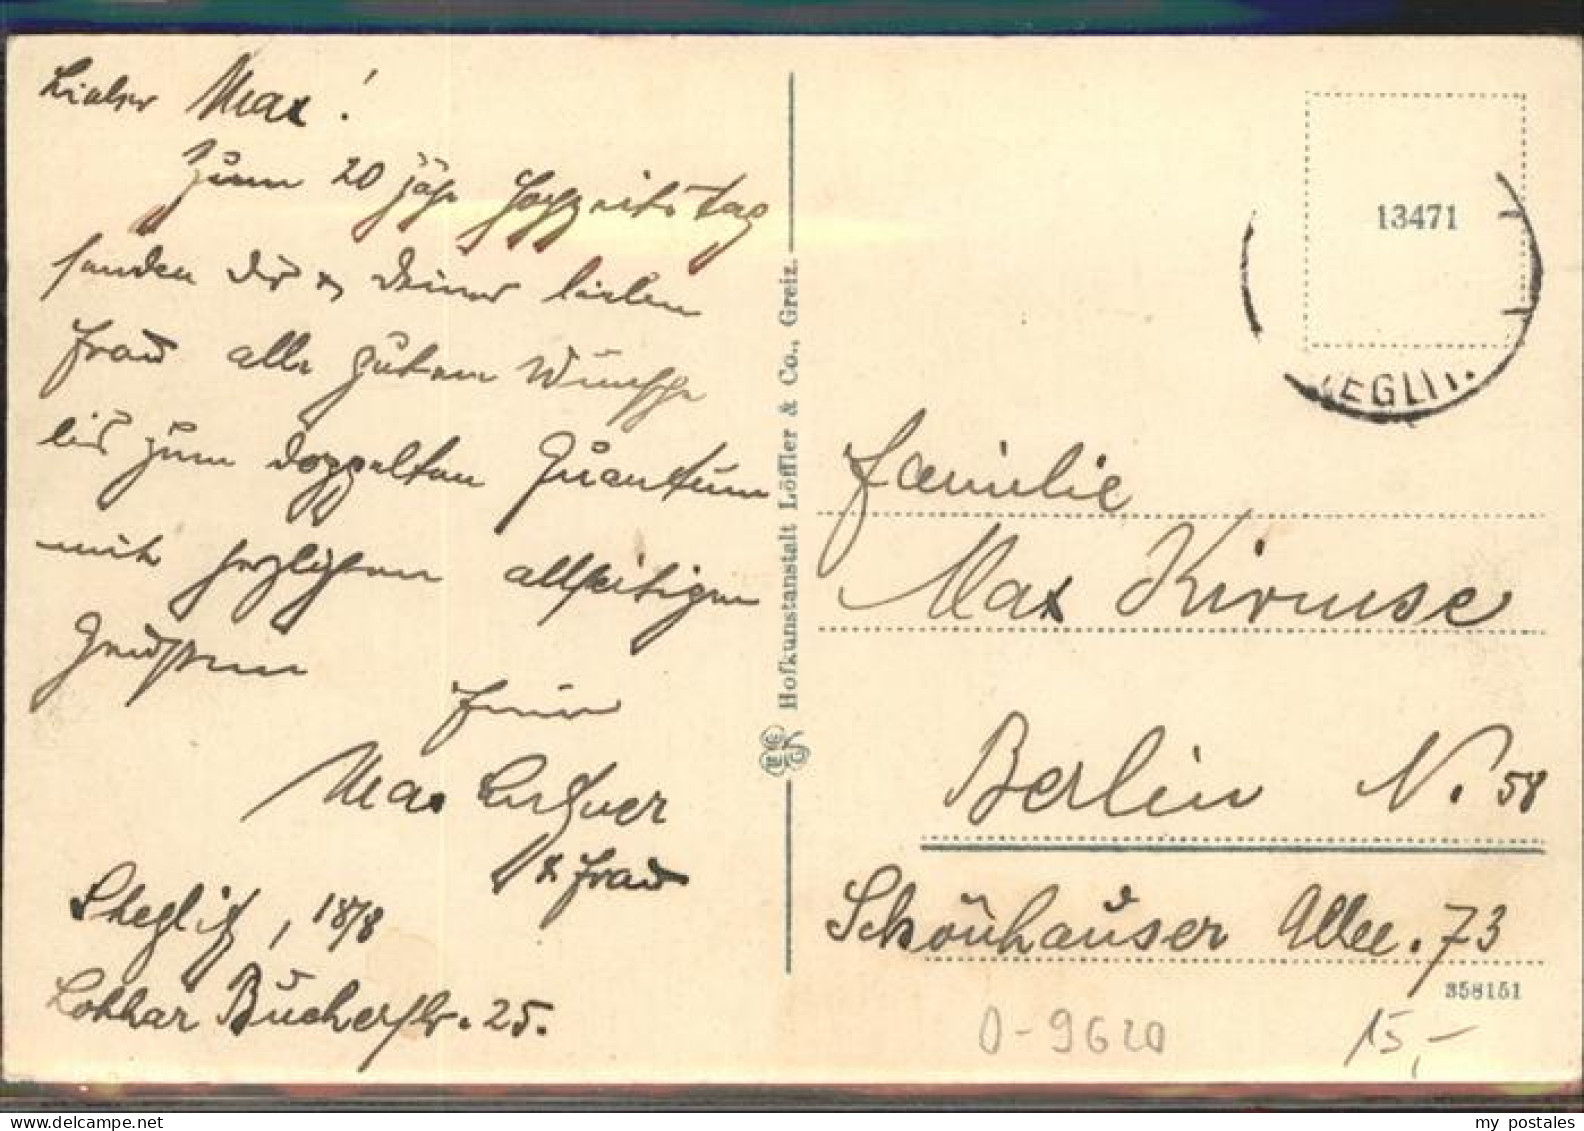 Lieber Max!
Zum 20 jähr. Hochzeitstag
senden Dir & Deiner lieben
Frau alle guten Wünsche
bis zum doppelten Quantum
mit herzlichen allseitigen
Grüssen
Max
& Frau
Steglitz, 18/8
Lothar Bucherstr. 25.
Hofkunstanstalt Löffler & Co., Greiz.
13471
EGLIT
Familie
Max Kirmse
Berlin N. 58
Schönhauser Allee. 73
358151
0-9620
15,-
my postales